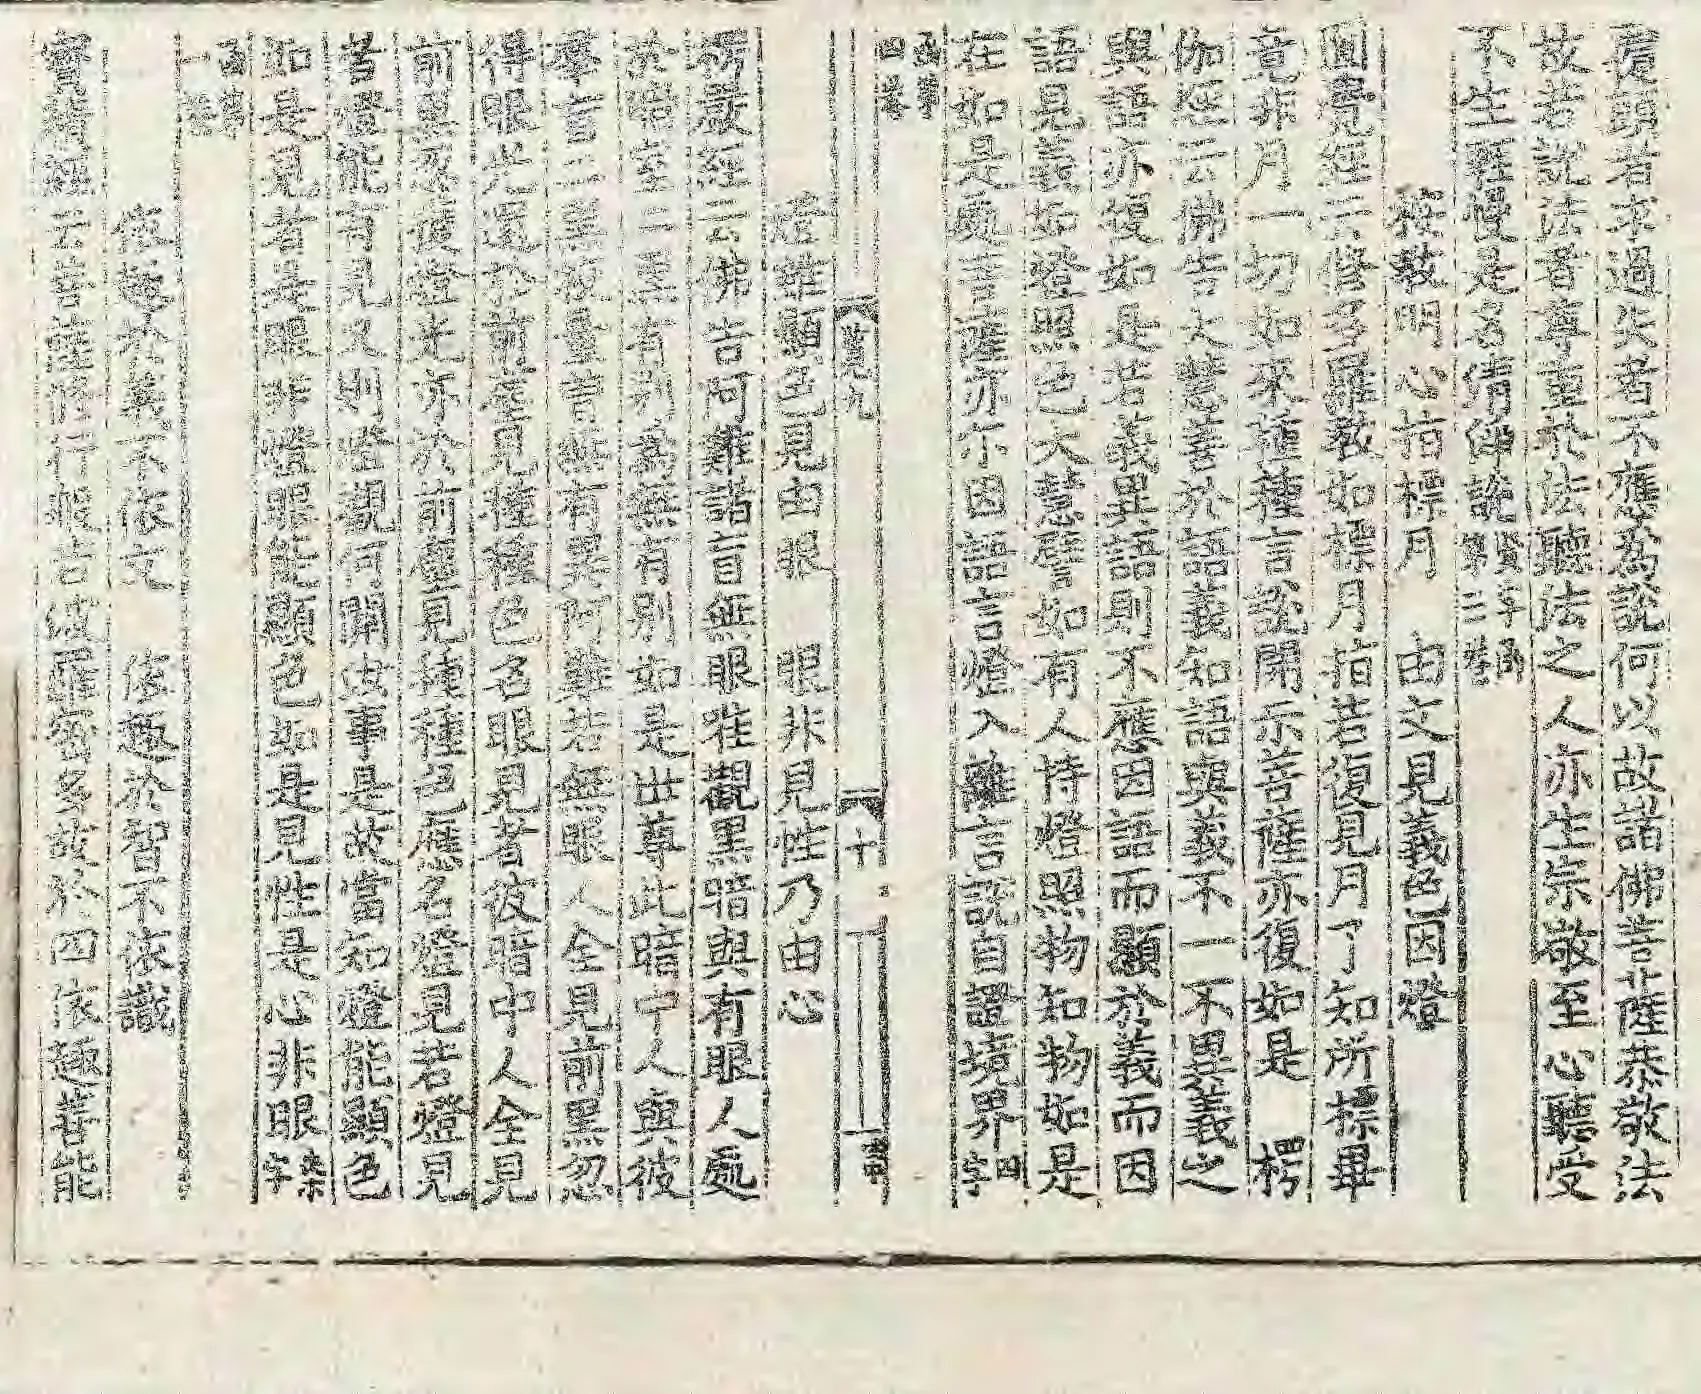 應明若求過失者不應爲說何以故諸佛菩薩恭敬法
故若說法者尊重於法聽法之人亦生宗敬至心聽受
不生輕慢是名清淨說
按教明心指標月　由文見義色因燈
圓覺經云修多羅教如標月指若復見月了知所標畢
竟非月一切如來種種言說開示菩薩亦復如是　楞
伽經云佛告大慧善於語義知語與義不一不異義之
與語亦復如是若義異語則不應因語而顯於義而因
語見義如燈照色大慧譬如有人持燈照物知物如是
在如是處菩薩亦尔因語言燈入離言說自證境界四字
函第
四卷
十
燈雖顯色見由眼　眼非見性乃由心
楞嚴經云佛告阿難諸盲無眼唯觀黑暗與有眼人處
於暗室二黑有別爲無有別如是世尊此暗中人與彼
羣盲二黑校量曾無有異阿難若無眼人全見前黑忽
得眼光還於前塵見種種色名眼見者彼暗中人全見
前黑忽獲燈光亦於前塵見種種色應名燈見若燈見
者燈能有見又則燈觀何關汝事是故當知燈能顯色
如是見者是眼非燈眼能顯色如是見性是心非眼染字
函第
一卷
依趣於義不依文　依趣於智不依識
寶積經云菩薩修行般若波羅蜜多故於四依趣善能